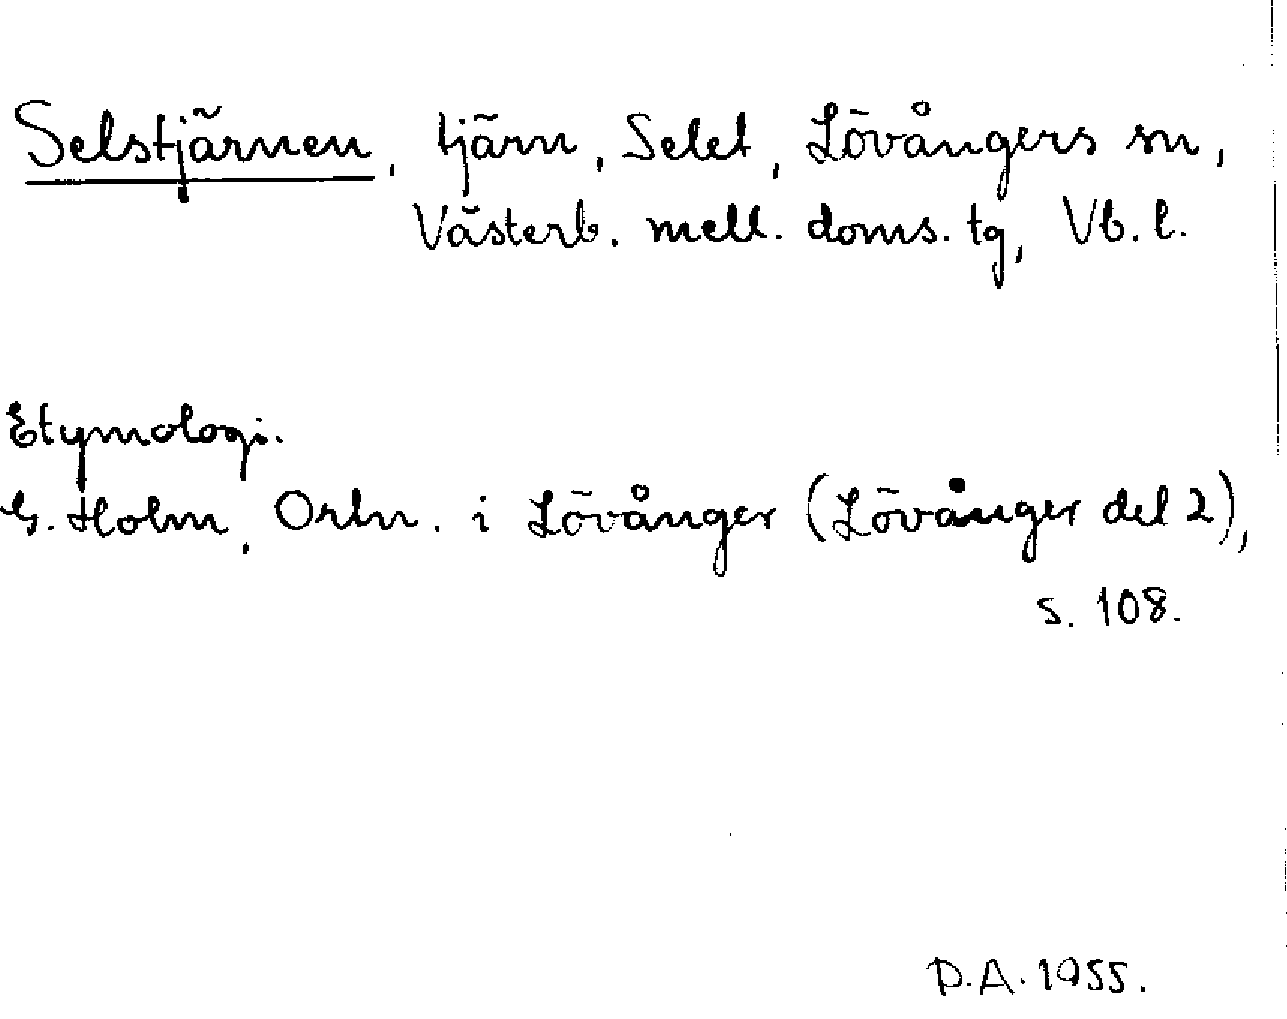 Selstjärnen, tjärn, Selet, Lövångers sn,
Västerb. mell. doms. tg, Vb. l.
Etymologi.
G. Holm, Ortn. i Lövånger (Lövånger del 2),
s. 108.
D.A. 1955.